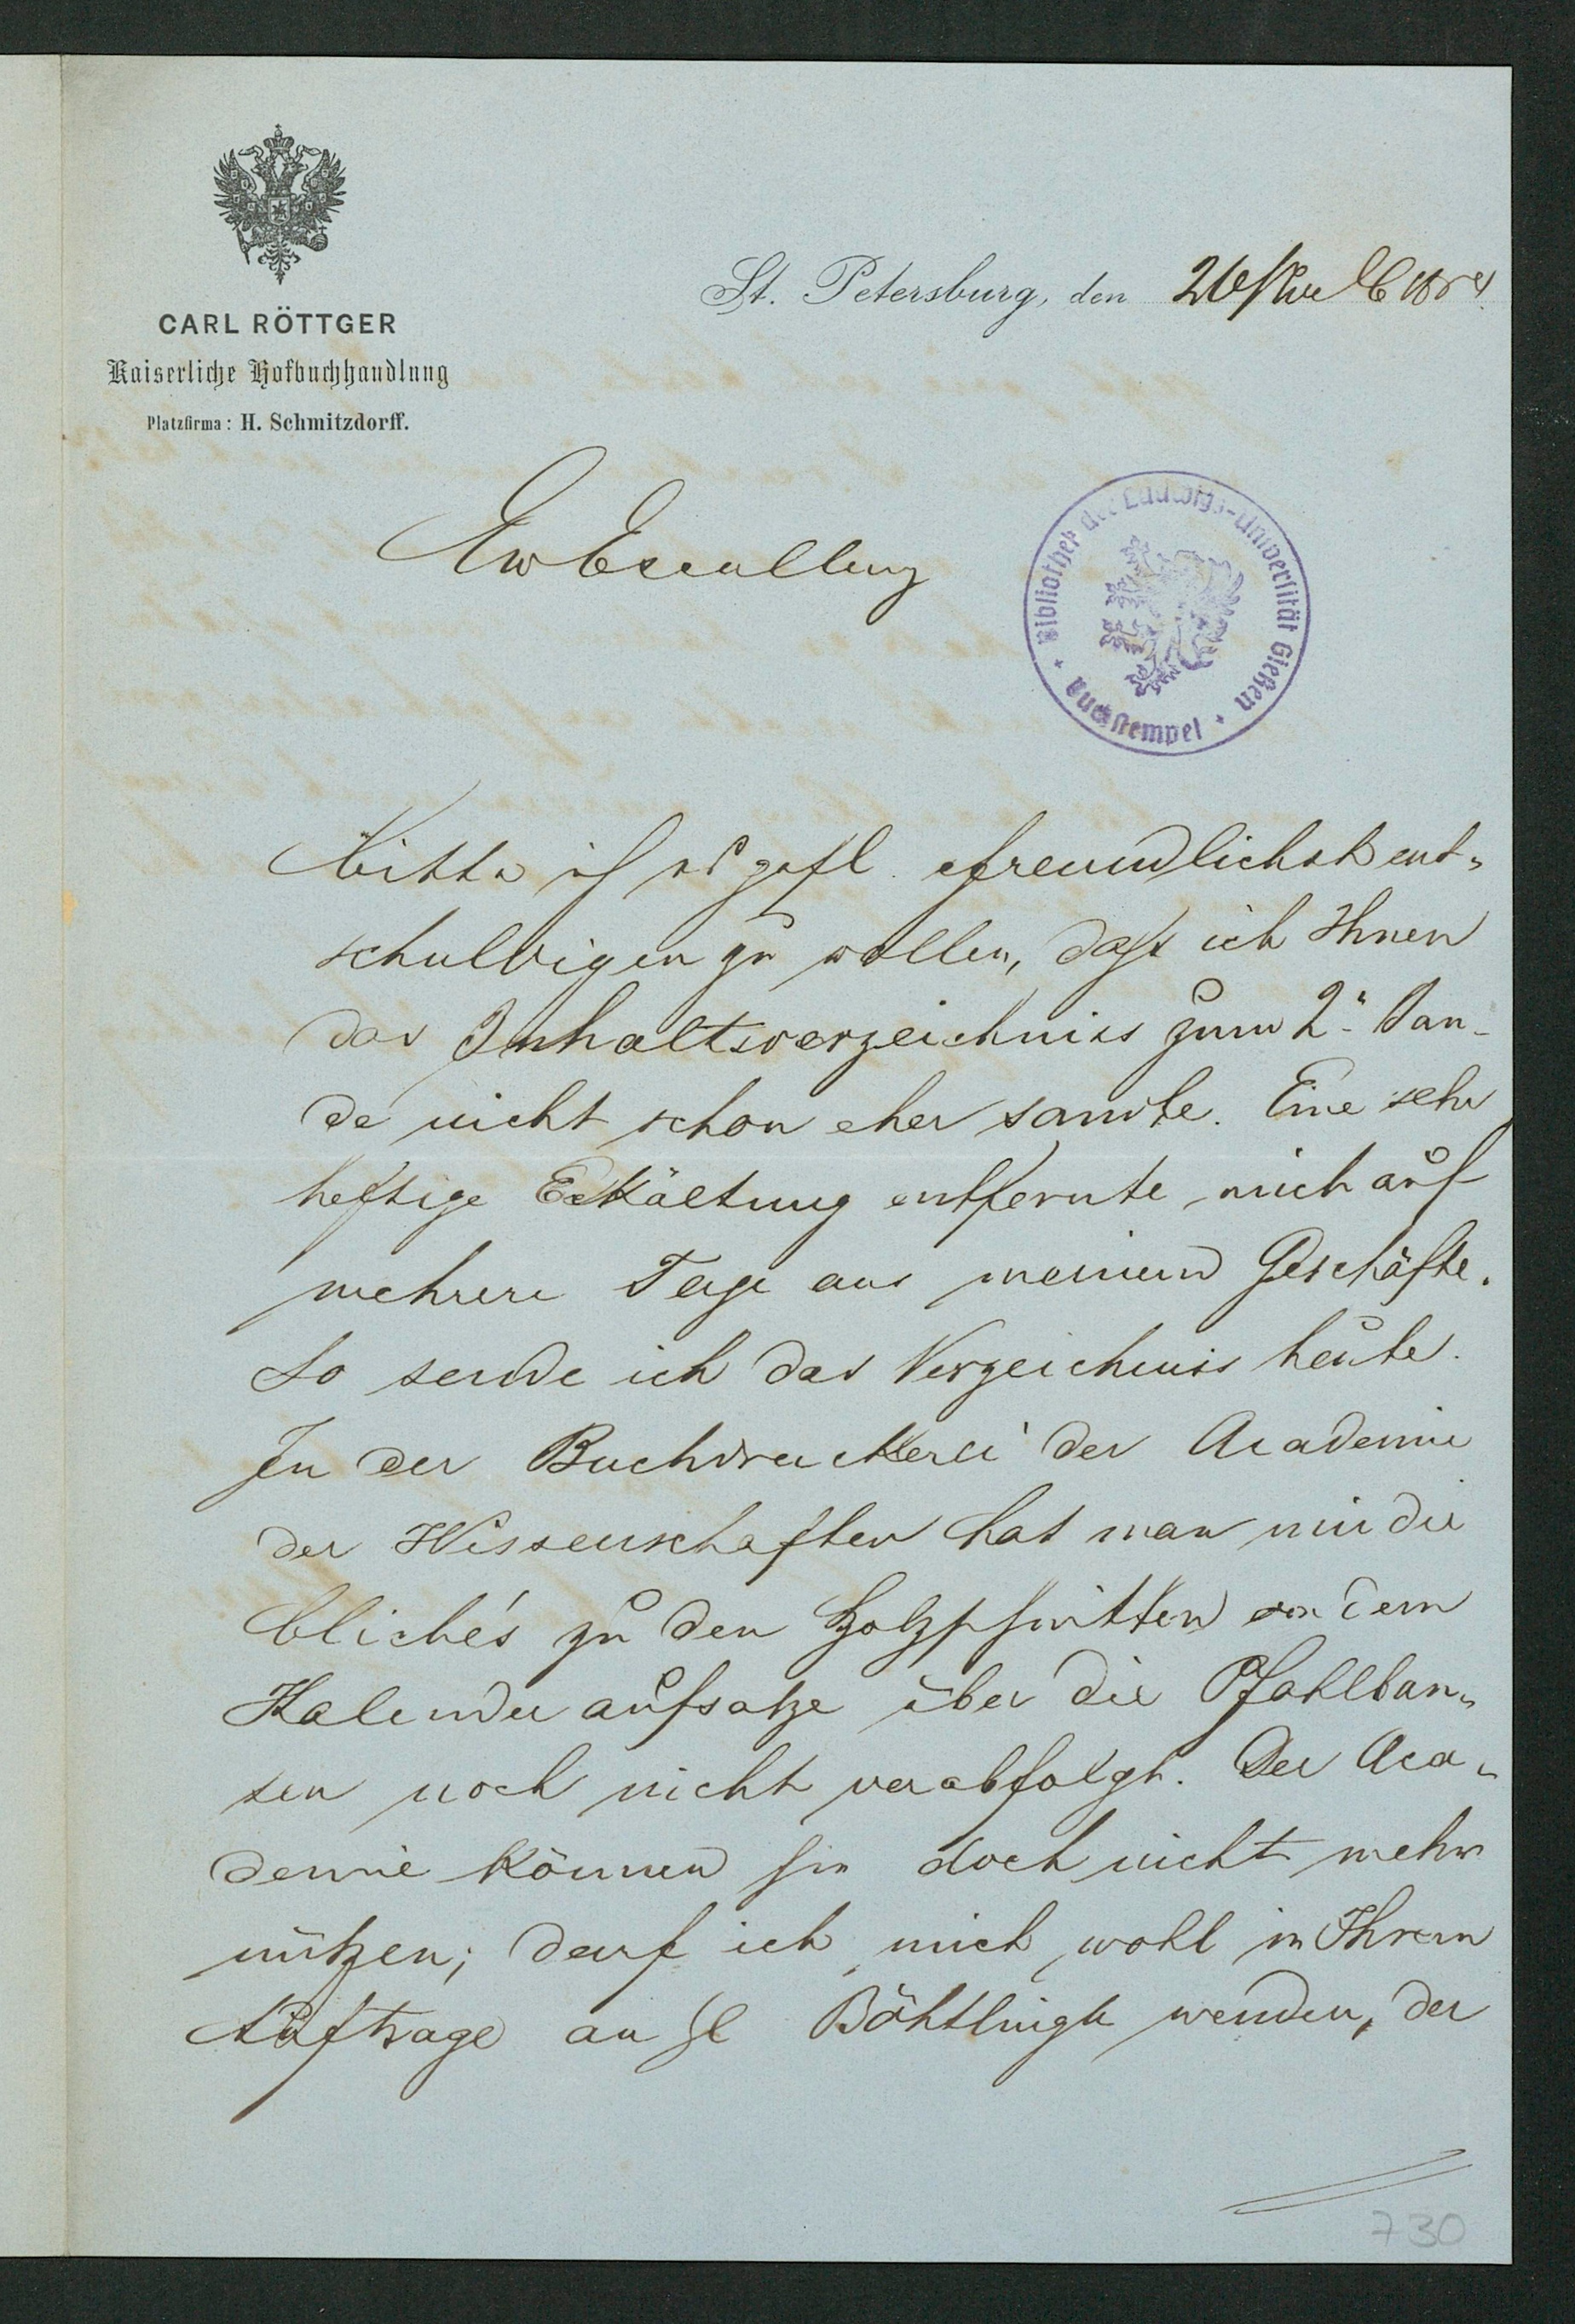 CARL RÖTTGER
Kaiserliche Hofbuchhandlung
Platzfirma: H. Schmitzdorff.
St. Petersburg, den
Ew Excellenz
Bibliothek der Ludwigs-Universität Gießen
Buchstempel
Bitte ich es gefl. freundlichst ent-
schuldigen zu wollen, dass ich Ihnen
das Inhaltsverzeichniss zum 2n Ban-
de nicht schon eher sandte. Eine sehr
heftige Erkältung entfernte mich auf
mehrere Tage aus meinem Geschäfte.
So sende ich das Verzeichniss heute.
In der Buchdruckerei der Academie
der Wissenschaften hat man mir die
Cliché's zu den Holzschnitten von dem
Kalenderaufsatze über die Pfahlbau-
ten noch nicht verabfolgt. Der Aca-
demie können sie doch nicht mehr
nützen; darf ich mich wohl in Ihrem
Auftrage an H Böhtlingk wenden, der
730